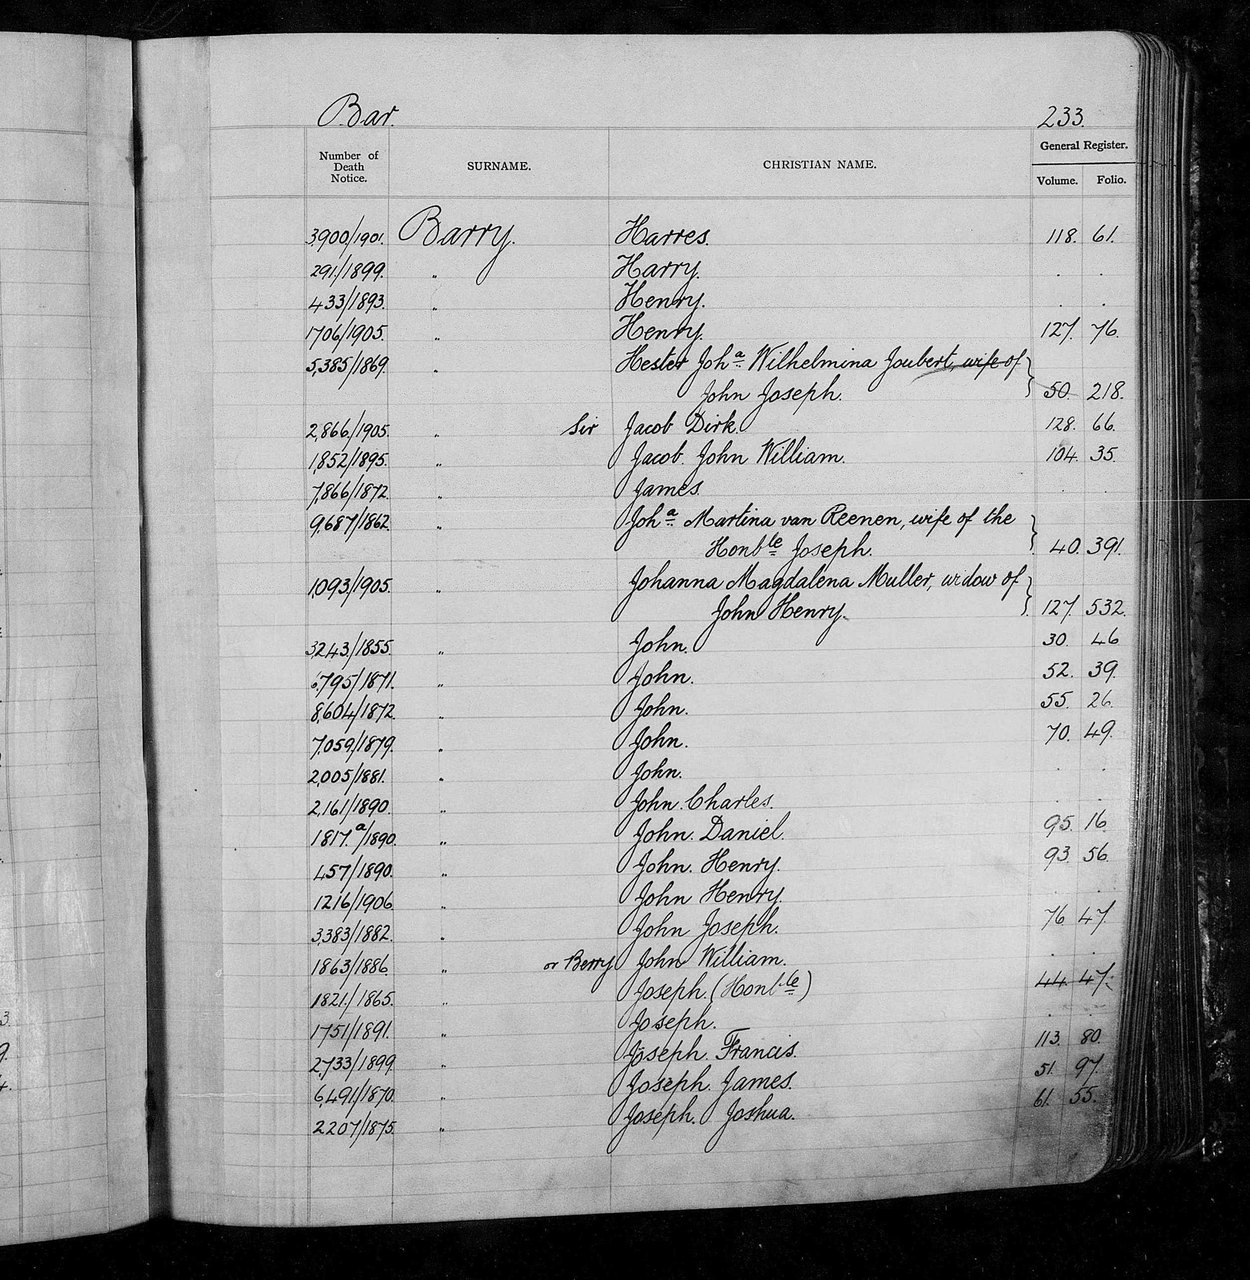 Bar.
233.
Number of Death Notice.
SURNAME.
CHRISTIAN NAME.
General Register.
Volume. Folio.
3,900/1901. Barry. Harres. 118. 61.
291/1899. " Harry. . .
433/1893. " Henry. . .
1706/1905. " Henry. 127. 76.
5,385/1869. " Hester Joha Wilhelmina Joubert, wife of
John Joseph. 50. 218.
2,866/1905. " Sir Jacob Dirk. 128. 66.
1,852/1895. " Jacob John William. 104. 35.
7,866/1872. " James. . .
9,687/1862. " Joha Martina van Reenen, wife of the
Honble Joseph. 40. 391.
1093/1905. " Johanna Magdalena Muller, widow of
John Henry. 127. 532.
3,243/1855. " John. 30. 46
6,795/1871. " John. 52. 39.
8,604/1872. " John. 55. 26.
7,059/1879. " John. 70. 49.
2,005/1881. " John. . .
2,161/1890. " John Charles. . .
1817a/1890. " John Daniel. 95. 16.
457/1890. " John Henry. 93. 56.
1216/1906. " John Henry. . .
3,383/1882. " John Joseph. 76. 47
1863/1886. " or Berry John William. . .
1821/1865. " Joseph (Honble) 44. 47.
1751/1891. " Joseph. . .
2,733/1899. " Joseph Francis. 113. 80.
6,491/1870. " Joseph James. 51. 97.
2207/1875. " Joseph Joshua. 61. 55.
3.
9.
4.